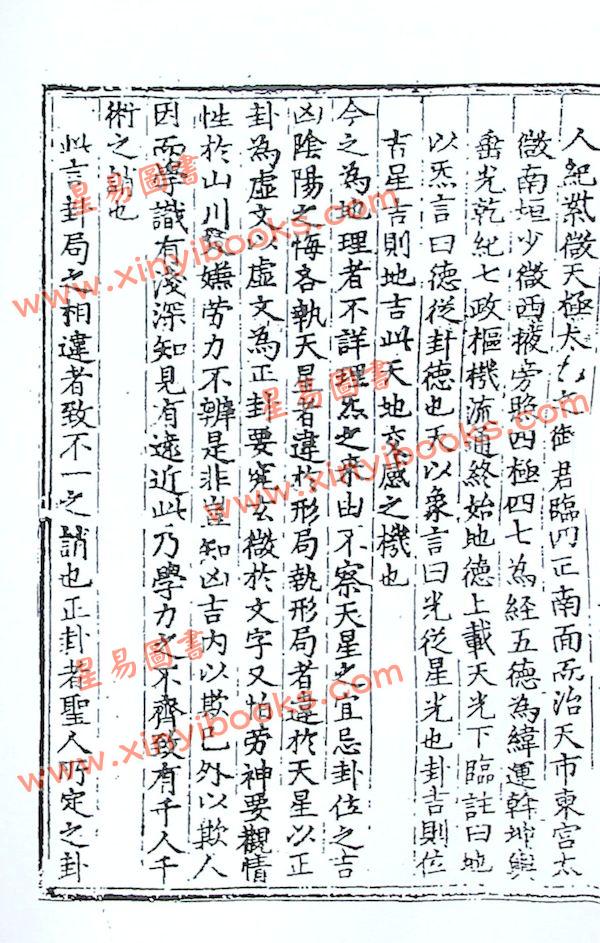 人紀紫微天極太乙之御君臨四正南面而治天市東宮太
微南垣少微西掖旁照四極四七為経五德為緯運斡坤輿
垂光乾紀七政樞機流通終始地德上載天光下臨註曰地
以炁言曰德從卦德也天以象言曰光從星光也卦吉則位
吉星吉則地吉此天地交感之機也
今之為地理者不詳理炁之来由不察天星之宜忌卦位之吉
凶陰陽之悔吝執天星者違於形局執形局者違於天星以正
卦為虛文以虛文為正卦要究玄微於文字又怕劳神要觀情
性於山川又嫌劳力不辨是非豈知凶吉内以欺己外以欺人
因而學識有浅深知見有遠近此乃學力之不齊致有千人千
術之誚也
此言卦局之相違者致不一之誚也正卦者聖人所定之卦
星易圖書
www.xinyibooks.com
星易圖書
www.xinyibooks.com
星易圖書
www.xinyibooks.com